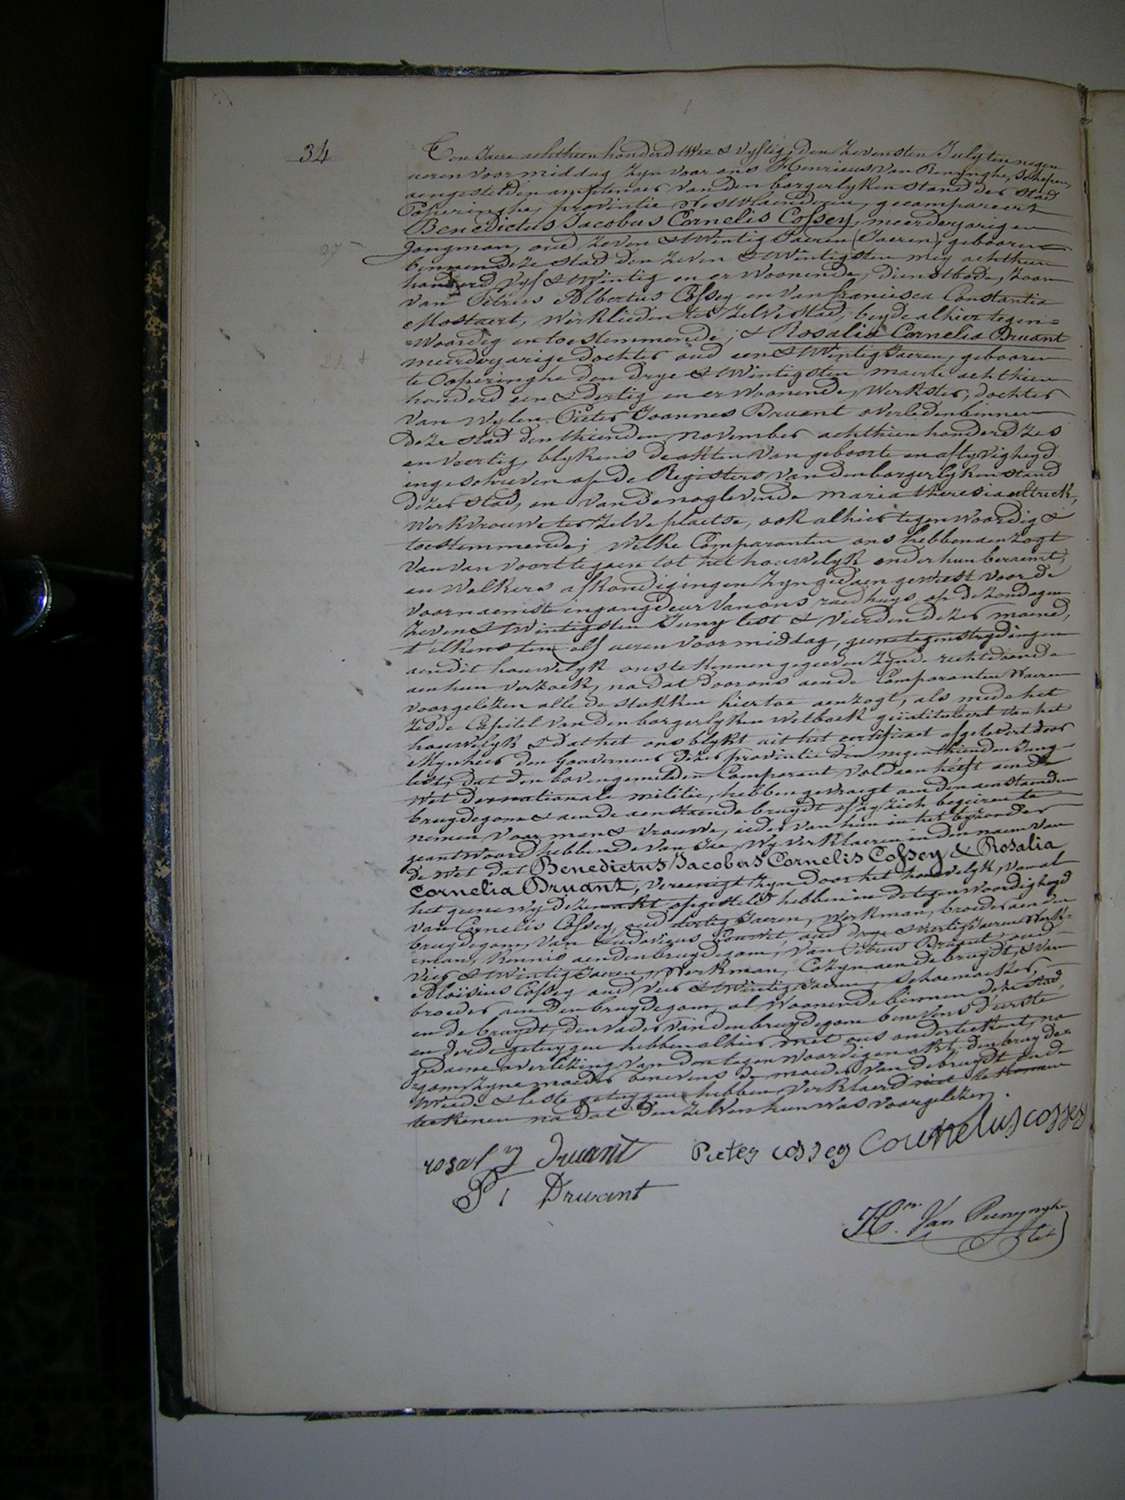 34
Ten Jaere achthien honderd twee & vyftig, den zevensten July ten negen
ueren voormiddag zyn voor ons Henricus Van Renynghe, Schepen,
aengestelden amptenaer van den borgerlyken stand der stad
Poperinghe, provintie Westvlaenderen, gecompareert
Benedictus Jacobus Cornelis Cossey, meerderjarigen
Jongman, oud zeven & twintig Jaeren (Jaeren) gebooren
binnen deze stad den zeven & twintigsten mey achthien
honderd vyf & twintig en er woonende, dienstbode, zoon
van Petrus Albertus Cossey en van francisca Constantia
Mostaert, werklieden ter zelve stad, beyde alhier tegen=
woordig en toestemmende; & Rosalia Cornelia Druant
meerderjarige dochter oud een & twintig Jaeren, gebooren
te Poperinghe den drye & twintigsten maerte achthien
honderd een & dertig en er woonende, werkster, dochter
van wylen Pieter Joannes Druant overleden binnen
deze stad den thienden november achthien honderd zes
en veertig, blykens de akten van geboorte en aflyvigheyd
ingeschreven op de Registers van den borgerlyken stand
dezer stad, en van de nog levende maria theresia
werkvrouwe ter zelve plaetse, ook alhier tegenwoordig &
toestemmende; welke Comparanten ons hebben aenzogt
van van voort te gaen tot het houwelyk onder hun beraemt,
en welkers afkondigingen zyn gedaen geweest voor de
voornaemste ingangdeur van ons raedhuys, op de zondagen
zeven & twintigsten Juny lest & vierden dezer maend,
t'elkens ten elf ueren voormiddag, geene tegenstrydingen
aen dit houwelyk ons te kennen gegeven zynde rechtdoende
aen hun verzoek, na dat door ons aen de Comparanten waeren
voorgelezen alle de stukken hier toe aenzogt, als mede het
zesde Capitel van den borgerlyken Wetboek geintituleert van het
houwelyk & dat het ons blykt uit het certificaet afgelevert door
Mynheer den Gouverneur dezer provintie den negenthienden Juny
lest, dat den bovengemelden Comparant voldaen heeft aen de
Wet der nationale militie, hebben gevraegt aen den aenstaenden
bruydegom & aen de aenstaende bruydt of zy zich begeeren te
nemen voor man & vrouwe, ieder van hun in het byzonder
geantwoord hebbende van Ja, Wy verklaeren in den naem van
de Wet dat Benedictus Jacobus Cornelis Cossey & Rosalia
Cornelia Druant, vereenigt zyn door het houwelyk, van al
het geene wy deze makt opgesteld hebben in de tegenwoordigheyd
van Cornelis Cossey, oud dertig Jaeren, werkman, broeder aen den
bruydegom, van Ludovicus oud drye & veertig Jaeren werk=
man, kennis aen den bruydegom, van Petrus Druant, oud
vier & twintig Jaeren, Werkman, Cozyn aen de bruydt, & van
Aloisius Cossey oud vier & twintig Jaeren, schoemaeker,
broeder aen den bruydegom, al woonende binnen deze stad,
en de bruydt, den vader van den bruydegom benevens d'eerste
en derde getuygen hebben alhier met ons onderteekent, na
gedaene overlezing van den tegenwoordigen akt, den bruyde=
gom, zyne moeder benevens de moeder van de bruydt en de
tweede & leste getuygen hebben verklaerd niet te konnen
teekenen na dat den zelven hun was voorgelezen.
Druant Pieter cossey Cornelus cossey
Druant
Hen. Van Renynghe